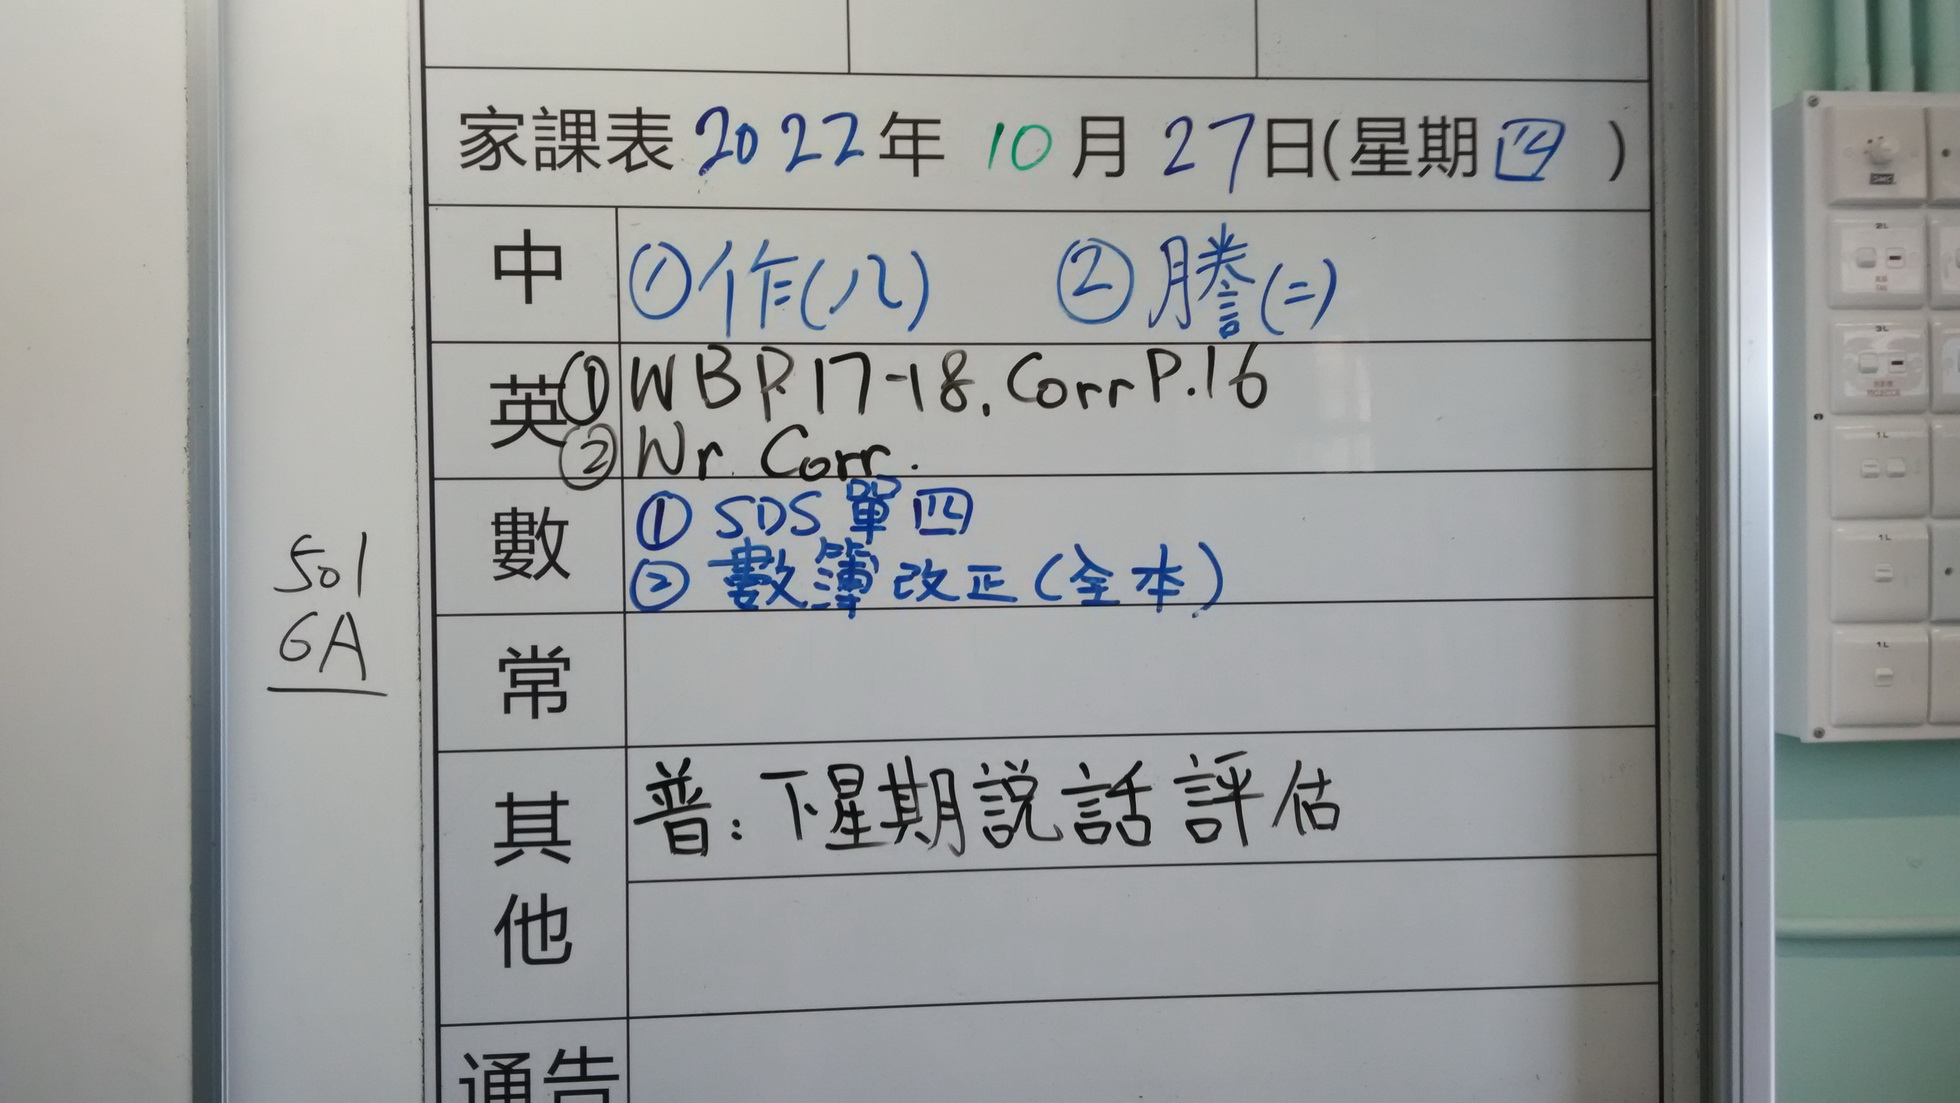 家課表 2022年 10月 27日(星期四)
中 ①作(八) ②謄(二)
英 ①WB P.17-18, Corr P.16
②Wr. Corr.
數 ① SDS 單四
② 數簿改正(全本)
501
6A
常
其他 普：下星期説話評估
通告